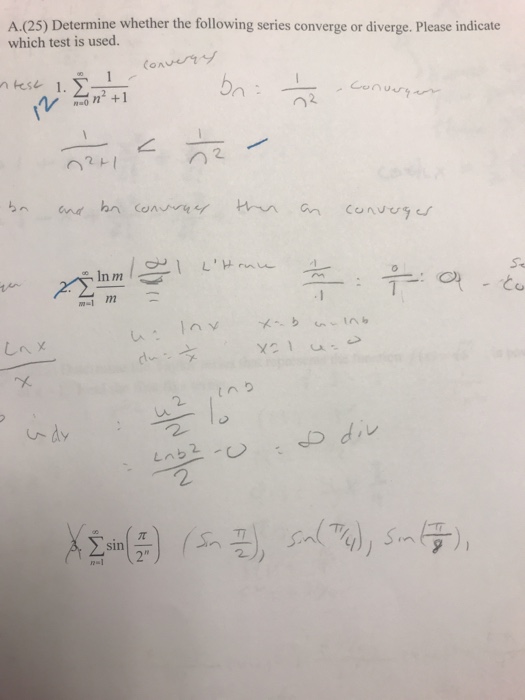 A.(25) Determine whether the following series converge or diverge. Please indicate
which test is used.
converges
n test 1. ∞ Σ n=0 1/(n² + 1) bn = 1/n² - converges
12
1/(n²+1) < 1/n²
bn and bn converges then an converges
2. ∞ Σ m=1 ln m / m ∞ L'H (1/m)/1 = 0/1 = 0
u = lnx x=b u=lnb
Lnx / x du = 1/x x=1 u=0
u du = u²/2 | 0 lnb
= Lnb²/2 - 0 = ∞ div
3. ∞ Σ n=1 sin(π/2ⁿ) (Sin π/2), sin(π/4), sin(π/8),